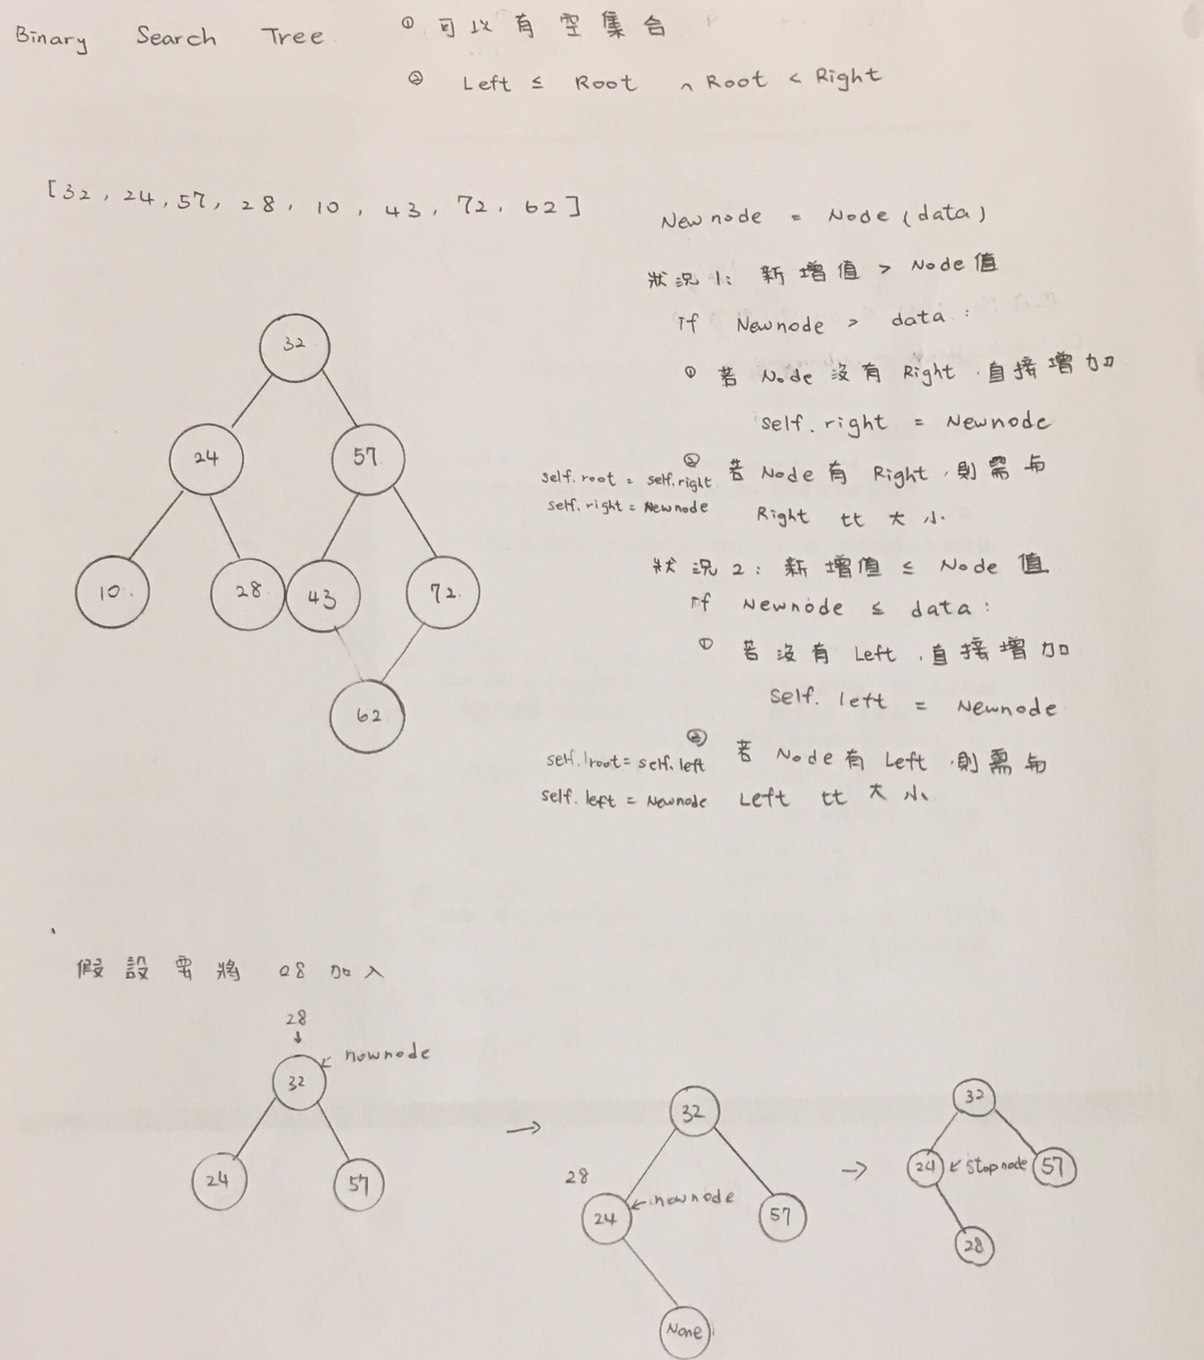 Binary Search Tree
① 可以有空集合
② Left ≤ Root ∧ Root < Right
[32, 24, 57, 28, 10, 43, 72, 62]
32
24 57
10 28 43 72
62
Newnode = Node(data)
狀況1: 新增值 > Node值
if Newnode > data:
① 若Node沒有Right,直接增加
self.right = Newnode
② 若Node有Right,則需与
Right 比大小
self.root = self.right
self.right = Newnode
狀況2: 新增值 ≤ Node值
if Newnode ≤ data:
① 若沒有Left,直接增加
self.left = Newnode
② 若Node有Left,則需与
Left 比大小
self.root = self.left
self.left = Newnode
假設要將 28 加入
28
nownode
32
24 57
→
32
28
24 nownode 57
None
→
32
24 stopnode 57
28